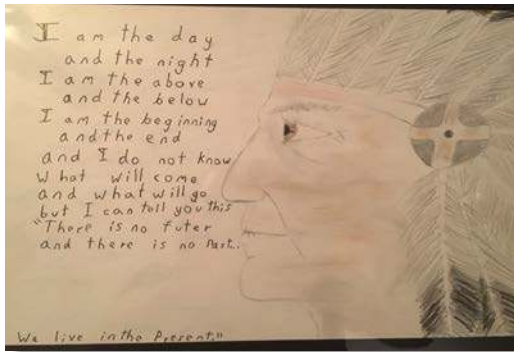 I am the day
and the night
I am the above
and the below
I am the beginning
and the end
and I do not know
what will come
and what will go
but I can tell you this
"There is no futer
and there is no Past..
We live in the Present."